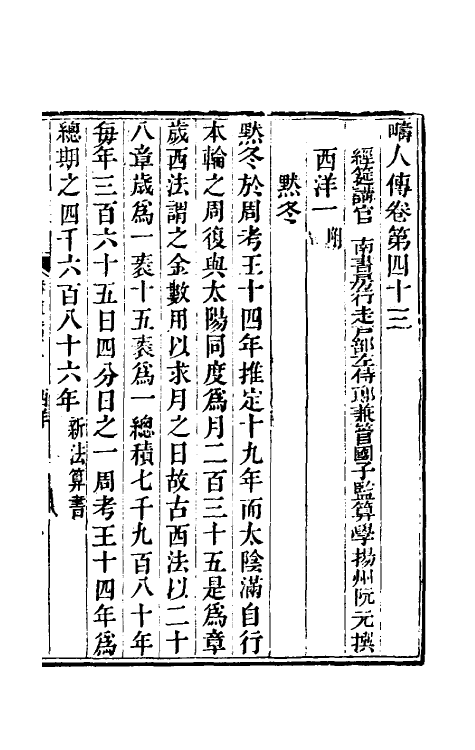 疇人傳卷第四十三
經筵講官 南書房行走戶部左侍郎兼管國子監算學揚州阮元撰
西洋一 附
默冬
默冬於周考王十四年推定十九年而太陰滿自行
本輪之周復與太陽同度為月二百三十五是為章
歲西法謂之金數用以求月之日故古西法以二十
八章歲為一袠十五袠為一總積七千九百八十年
每年三百六十五日四分日之一周考王十四年為
總期之四千六百八十六年 新法算書